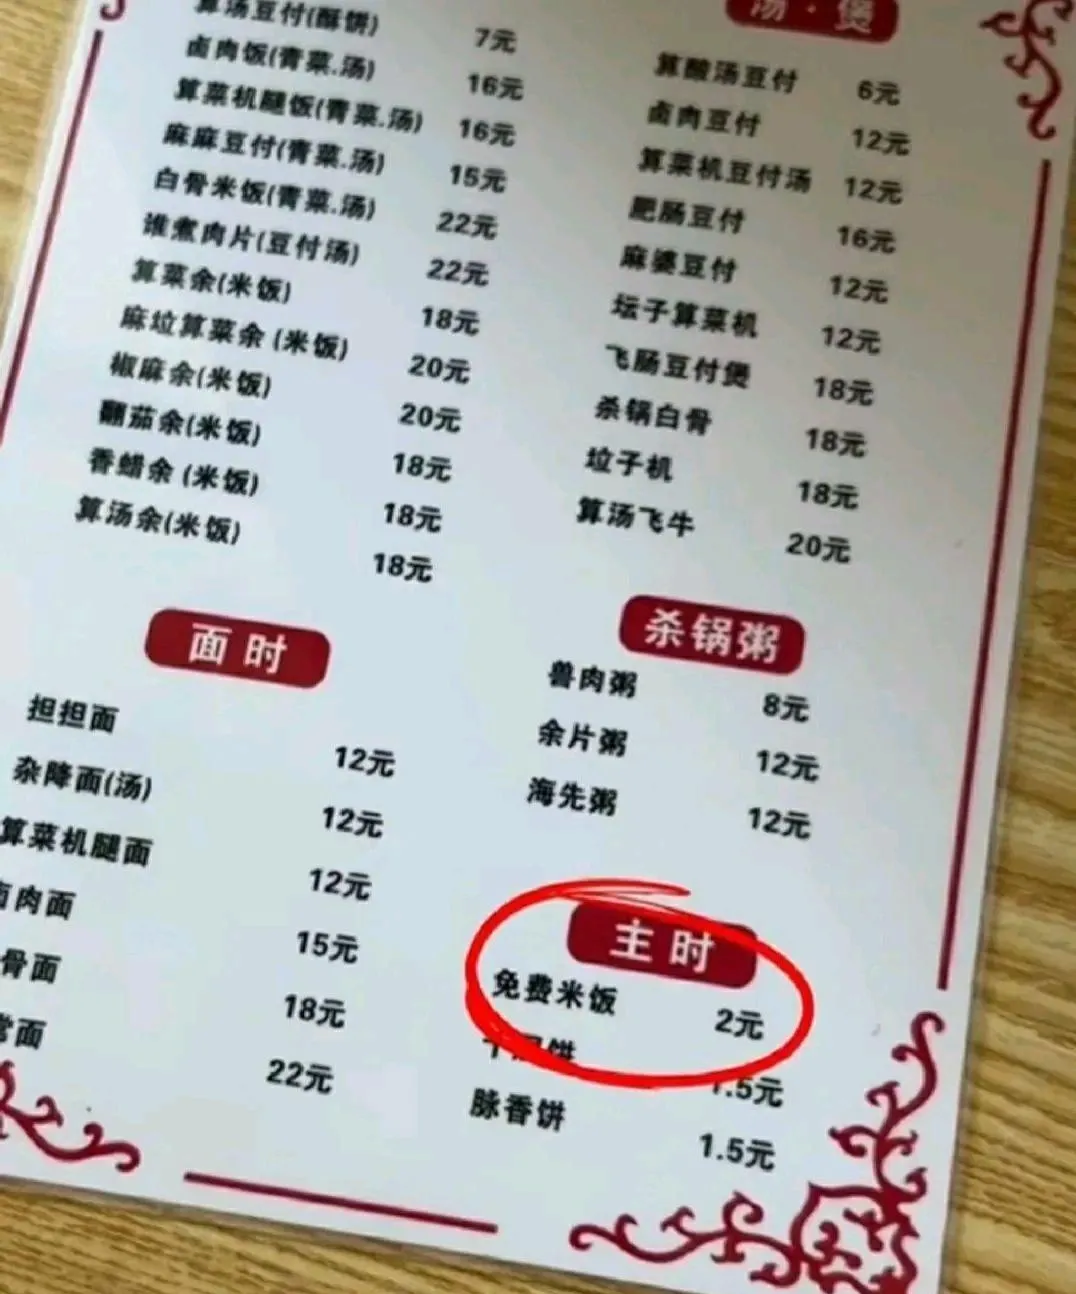 算汤豆付(酥饼) 7元
卤肉饭(青菜.汤) 16元
算菜机腿饭(青菜.汤) 16元
麻麻豆付(青菜.汤) 15元
白骨米饭(青菜.汤) 22元
谁煮肉片(豆付汤) 22元
算菜余(米饭) 18元
麻垃算菜余 (米饭) 20元
椒麻余(米饭) 20元
翻茄余(米饭) 18元
香蜡余 (米饭) 18元
算汤余(米饭) 18元
面时
担担面 12元
杂降面(汤) 12元
算菜机腿面 12元
肉面 15元
骨面 18元
面 22元
汤·煲
算酸汤豆付 6元
卤肉豆付 12元
算菜机豆付汤 12元
肥肠豆付 16元
麻婆豆付 12元
坛子算菜机 12元
飞肠豆付煲 18元
杀锅白骨 18元
垃子机 18元
算汤飞牛 20元
杀锅粥
兽肉粥 8元
余片粥 12元
海先粥 12元
主时
免费米饭 2元
饼 1.5元
脉香饼 1.5元